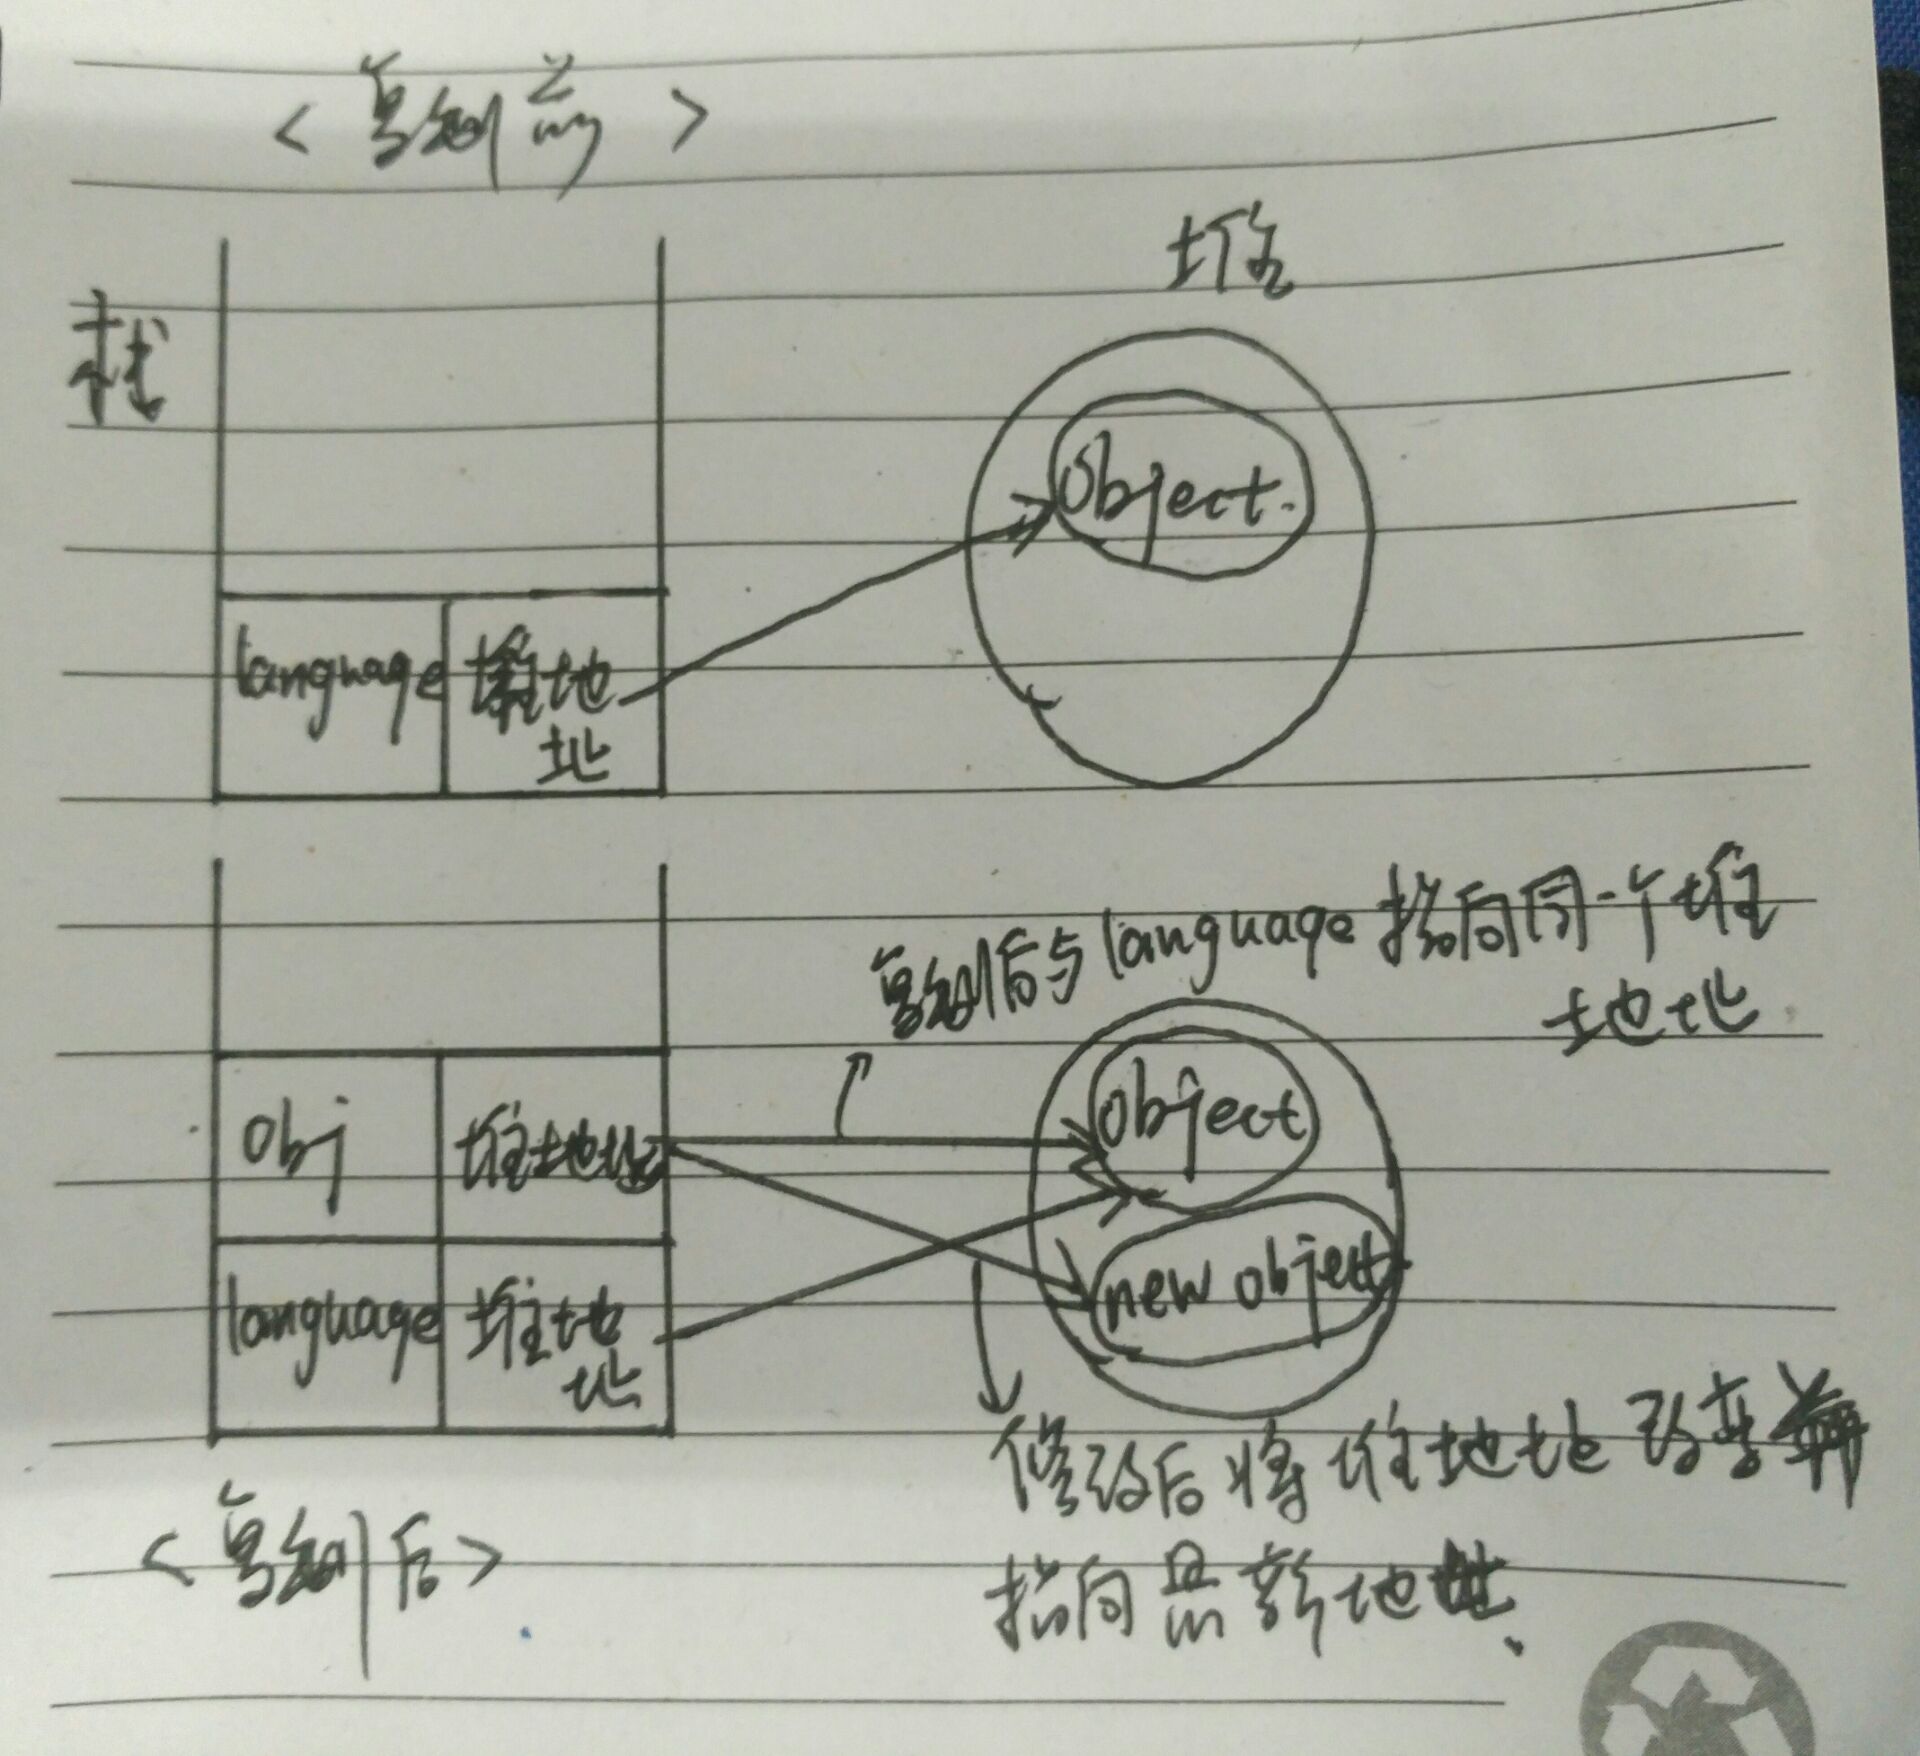 <复制前>
堆
栈
Object.
language
堆地
址
复制后与language指向同一个堆
地址
Obj
堆地址
object
new object
language
堆地
址
修改后将堆地址改变
指向最新地址.
<复制后>